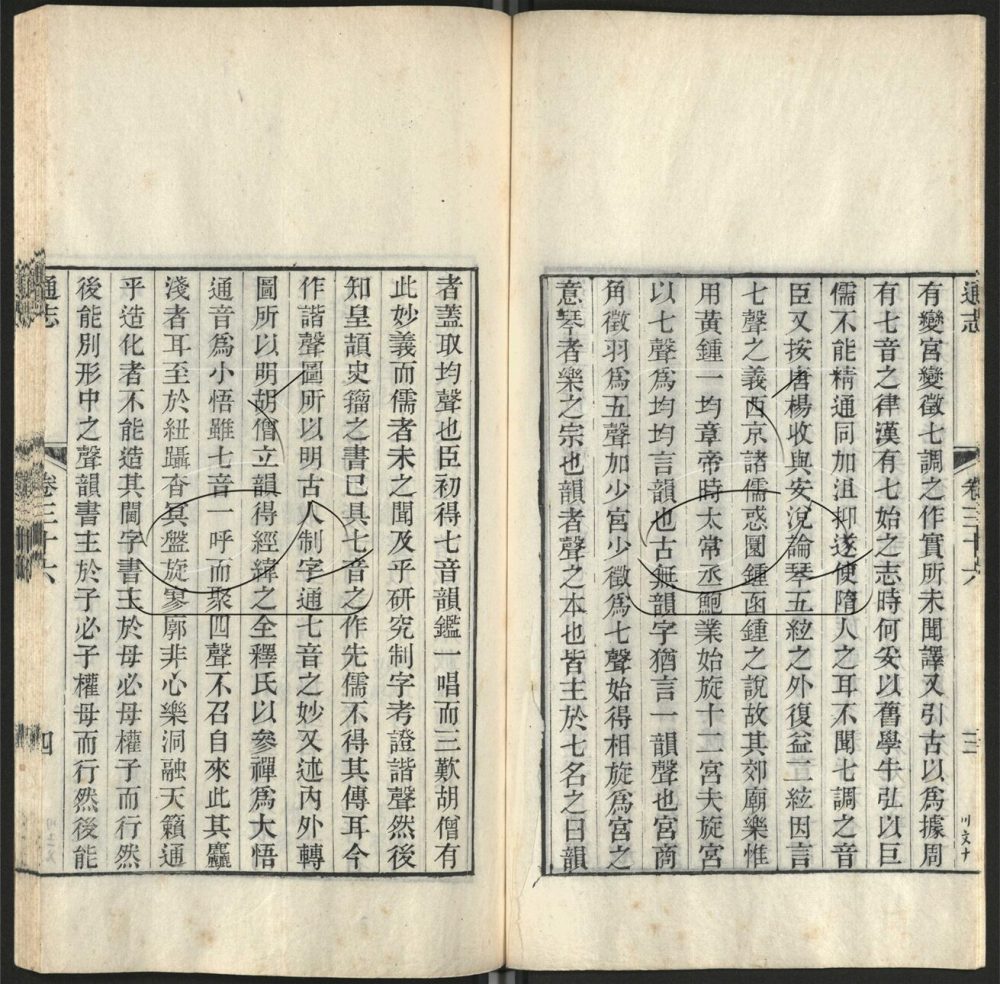 通志
卷三十六
三
有變宮變徵七調之作實所未聞譯又引古以爲據周
有七音之律漢有七始之志時何妥以舊學牛弘以巨
儒不能精通同加沮抑遂使隋人之耳不聞七調之音
臣又按唐楊收與安涗論琴五絃之外復益二絃因言
七聲之義西京諸儒惑圜鍾函鍾之說故其郊廟樂惟
用黃鍾一均章帝時太常丞鮑業始旋十二宮夫旋宮
以七聲爲均均言韻也古無韻字猶言一韻聲也宮商
角徵羽爲五聲加少宮少徵爲七聲始得相旋爲宮之
意琴者樂之宗也韻者聲之本也皆主於七名之曰韻
者蓋取均聲也臣初得七音韻鑑一唱而三歎胡僧有
此妙義而儒者未之聞及乎研究制字考證諧聲然後
知皇頡史籀之書已具七音之作先儒不得其傳耳今
作諧聲圖所以明古人制字通七音之妙又述内外轉
圖所以明胡僧立韻得經緯之全釋氏以參禪爲大悟
通音爲小悟雖七音一呼而聚四聲不召自來此其麤
淺者耳至於紐躡杳冥盤旋寥廓非心樂洞融天籟通
乎造化者不能造其閫字書主於母必母權子而行然
後能別形中之聲韻書主於子必子權母而行然後能
通志
卷三十六
四